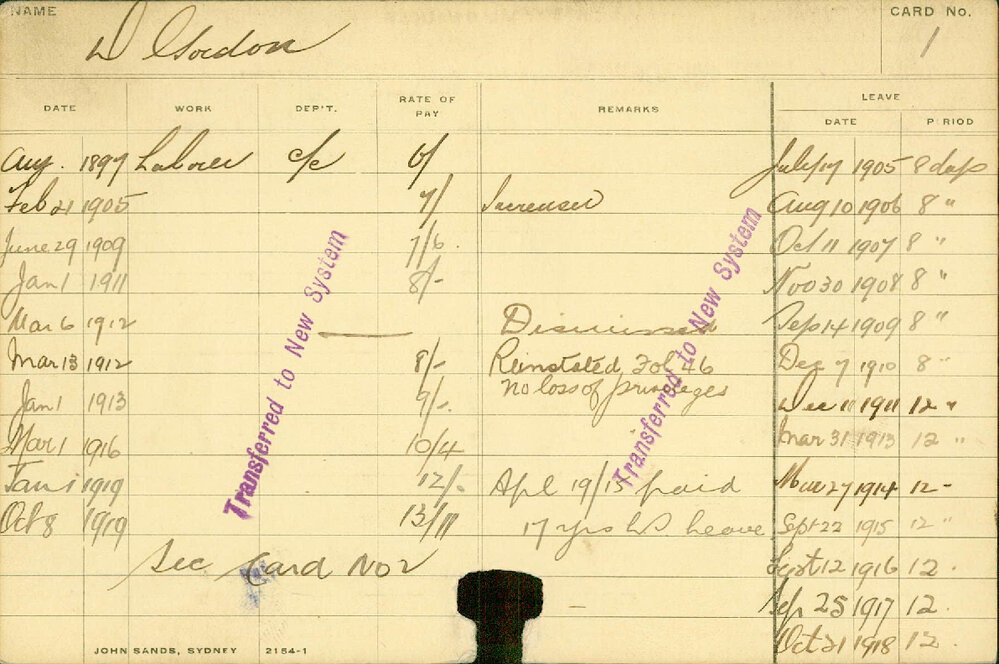 NAME
D Gordon
CARD No.
1
DATE WORK DEP'T. RATE OF PAY REMARKS LEAVE
DATE PERIOD
Aug. 1897 Labourer c/c 6/ July 17 1905 8 days
Feb 21 1905 7/ Increased Aug 10 1906 8 "
June 29 1909 7/6. Oct 11 1907 8 "
Jan 1 1911 8/- Nov 30 1908 8 "
Mar 6 1912 — Dismissed Sep 14 1909 8 "
Mar 13 1912 8/- Reinstated Fol 46 Dec 7 1910 8 "
no loss of privileges
Jan 1 1913 9/-. Dec 11 1911 12 "
Mar 1 1916 10/4 Mar 31 1913 12 "
Jan 1 1919 12/- Apl 19/15 paid Mar 27 1914 12 -
Oct 8 1919 13/11 17 yrs L.S. Leave Sept 22 1915 12 "
See Card No 2 Sept 12 1916 12.
Sep 25 1917 12.
Oct 21 1918 12.
Transferred to New System
Transferred to New System
JOHN SANDS, SYDNEY 2154-1